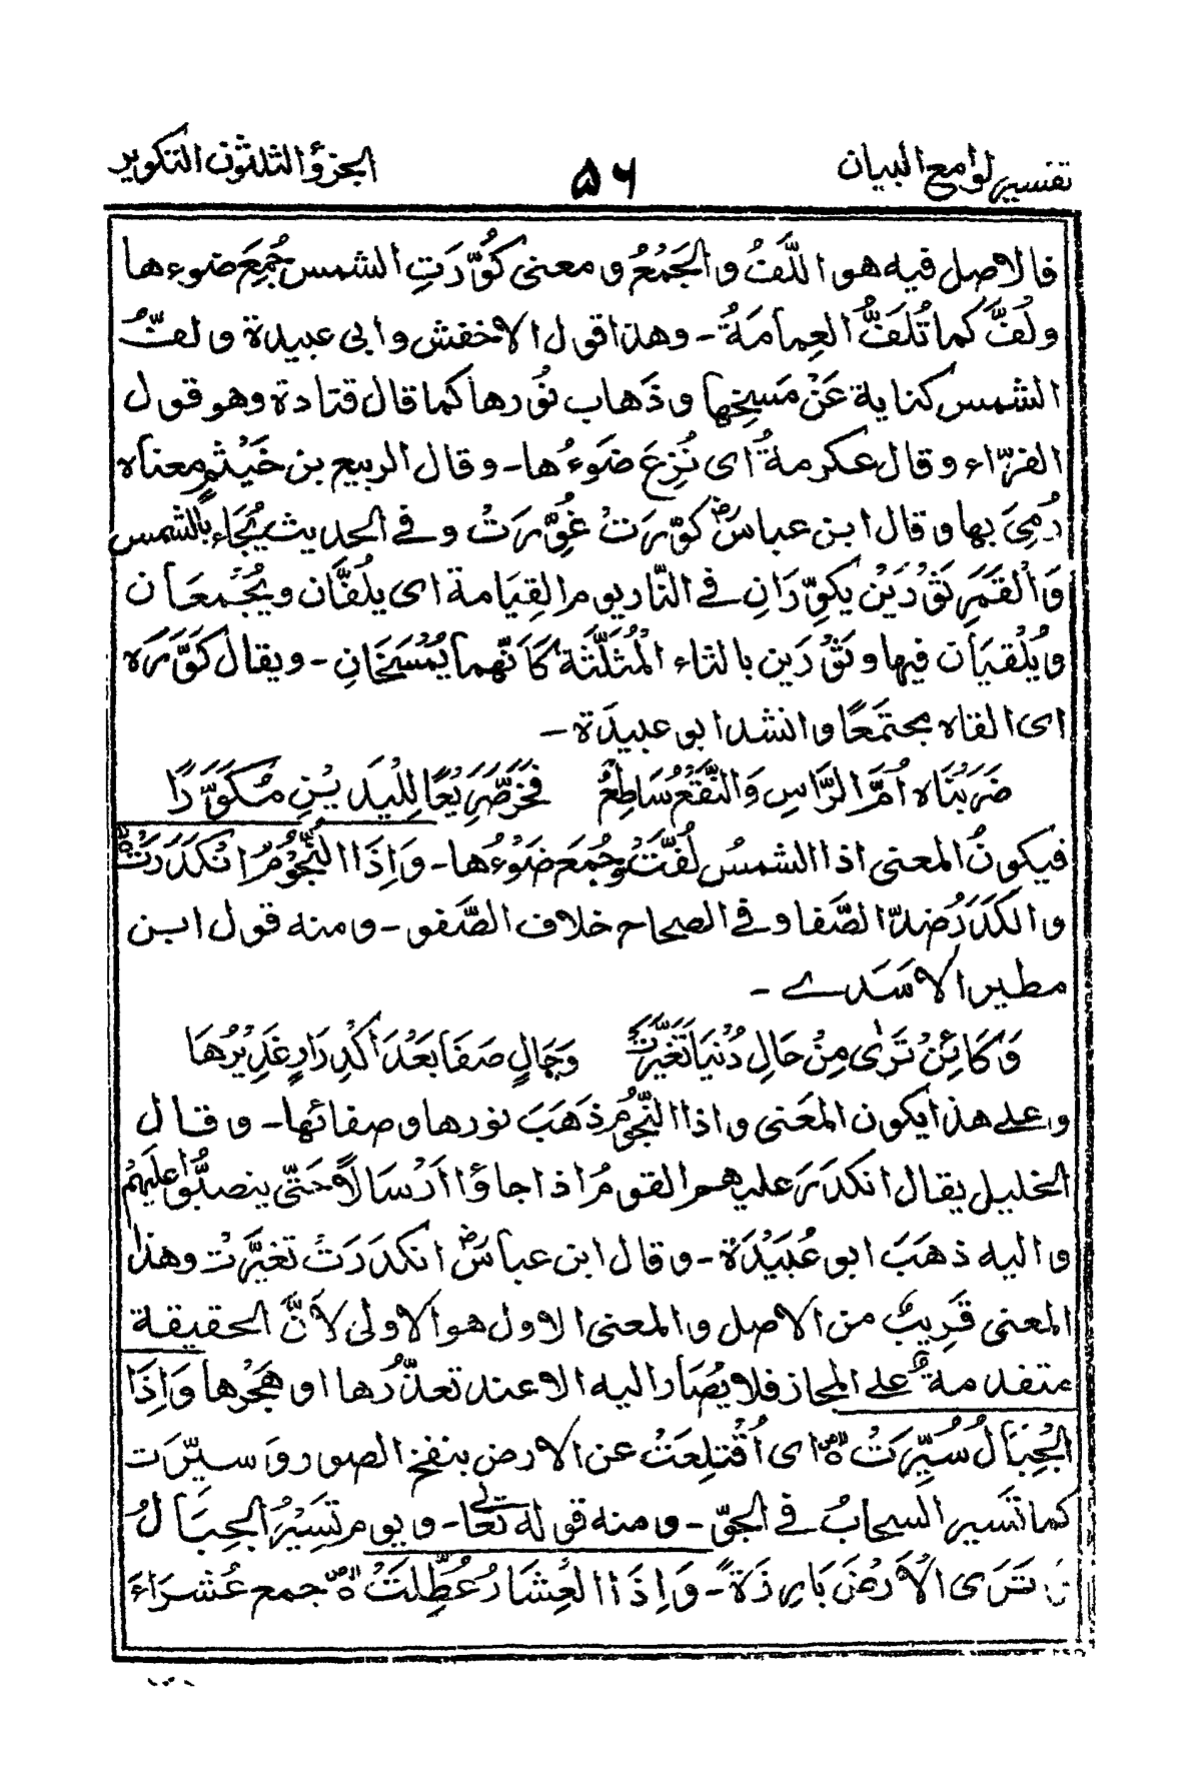 تفسیر لوامع البیان ۵۶ الجزؤ الثلثون التکویر
فالاصل فیه هو اللَّفُ والجَمْعُ و معنی کُوِّرَتِ الشمس جُمِعَ ضوءها
ولُفَّ کما تُلَفُّ العِمامَةُ - وهذا قول الاخفش وابی عبیدة ولفُّ
الشمس کنایة عَنْ مَسْخِها وذَهاب نُورها کما قال قتادة وهو قول
الفرّاء وقال عکرمةُ ای نُزِعَ ضَوءُها - وقال الربیع بن خَیْثم معناه
رُمِیَ بها وقال ابن عباسؓ کوّرَتْ غُوِّرَتْ وفے الحدیث یُجَاءُ بالشمس
وَالْقَمَرِ ثَوْرَیْن یکوَّرَانِ فے النّار یوم القِیَامة ای یلُفَّان ویُجْمعَان
ویُلْقیَان فیها وثَوْرَین بالثاء المُثَلَّثَة کَانّهما یُمْسَخَانِ - ویقال کَوَّرَه
ای القاه مجتمَعًا وانشد ابو عبیدَة -
ضَرَبْنَاه اُمَّ الرَّاسِ وَالنَّقْعُ سَاطِعٌ فَخَرَّ صَرِیْعًا لِلْیَدَیْنِ مُکَوَّرًا
فیکونُ المعنی اذا الشمسُ لُفَّتْ وجُمِعَ ضَوْءُها - وَاِذَا النُّجُوْمُ انْکَدَرَتْ ۝
والکَدَرُ ضدّ الصَّفا وفے الصحاح خلاف الصَّفو - ومنه قول ابن
مطیر الاَسَدے -
وَکَائِنْ تَرٰی مِنْ حَالِ دُنْیَا تَغَیَّرَتْ وَجَالٍ صَفَا بَعْدَ اکْدِرَارٍ غَدِیْرُهَا
وعلے هذا یکون المعَنی واذا النّجُوم ذَهَبَ نورها وصفائها - وقال
الخلیل یقال انکدَرَ علیهم القومُ اذا جاؤا اَرْسَالًا حَتّٰی ینصبُّوا علیهِمْ
والیه ذهَبَ ابو عُبَیْدَة - وقال ابن عباسؓ انکدرَتْ تغیَّرَتْ وهذا
المعنی قَرِیبٌ من الاصل والمعنی الاول هو الاولی لاَنَّ الحقیقة
متقدمةٌ علی المجاز فلا یُصَار الیه الا عند تعذّرُها او هَجْرها وَاِذَا
الْجِبَالُ سُیِّرَتْ ۝ ای اُقْتلِعَتْ عن الارض بنفخ الصور وَسیّرَت
کما تَسیر السحابُ فے الجوّ - ومنه قوله تعالٰی - ویوم تُسَیَّرُ الجِبَالُ
تَرَی الْاَرْضَ بَارِزَةً - وَاِذَا الْعِشَارُ عُطِّلَتْ ۝ جمع عُشَرَاءَ